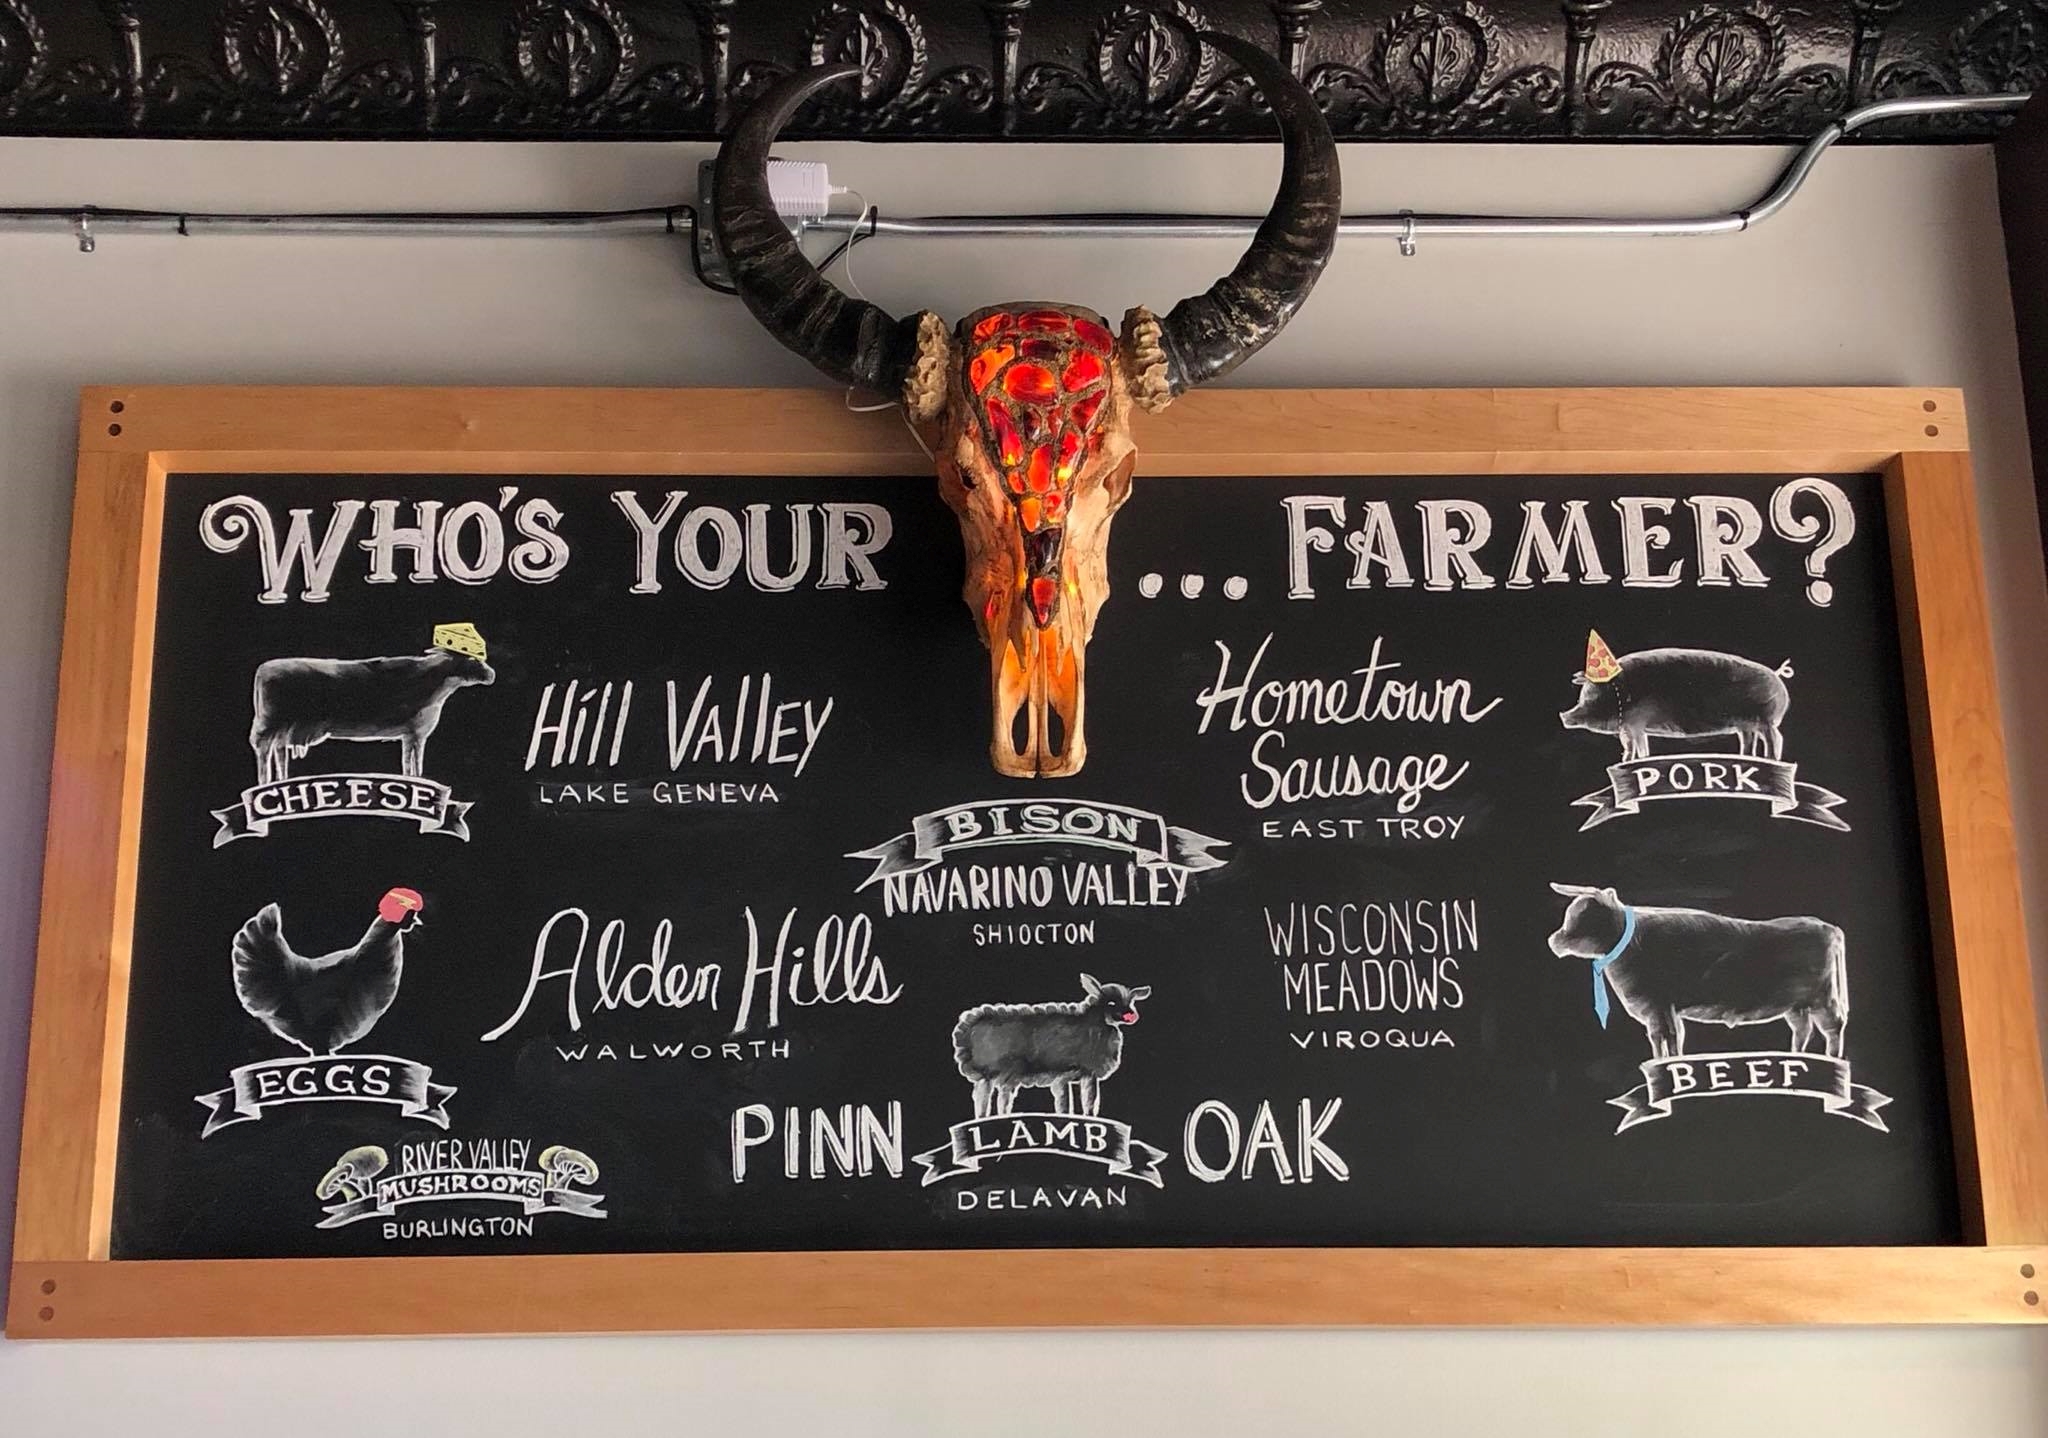 WHO'S YOUR ... FARMER?
CHEESE
Hill VAllEY
LAKE GENEVA
EGGS
Alden Hills
WALWORTH
RIVER VALLEY
MUSHROOMS
BURLINGTON
BISON
NAVARINO VALLEY
SHIOCTON
PINN OAK
LAMB
DELAVAN
Hometown
Sausage
EAST TROY
PORK
WISCONSIN
MEADOWS
VIROQUA
BEEF